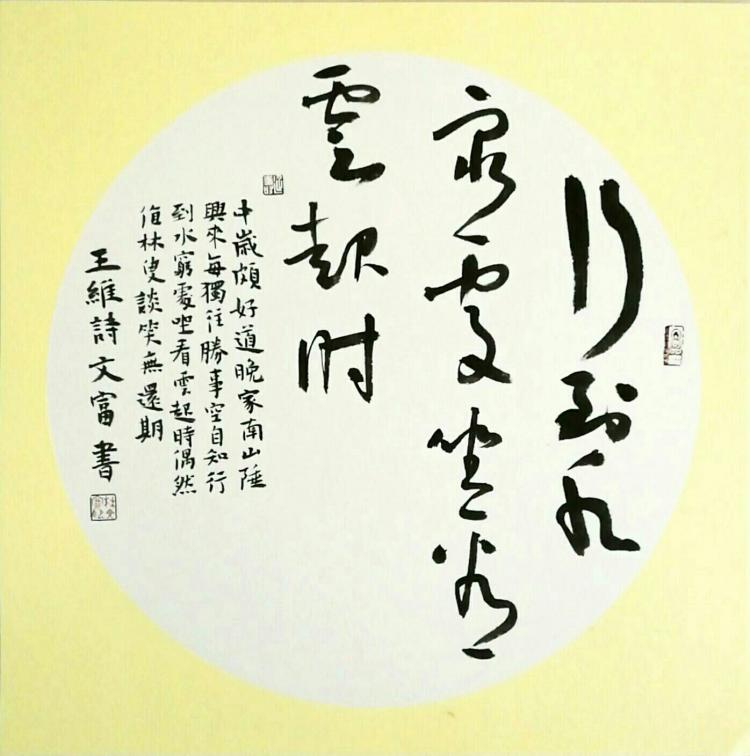 行到水
窮處坐看
雲起時
中歲頗好道晚家南山陲
興來每獨往勝事空自知行
到水窮處坐看雲起時偶然
值林叟談笑無還期
王維詩文富書